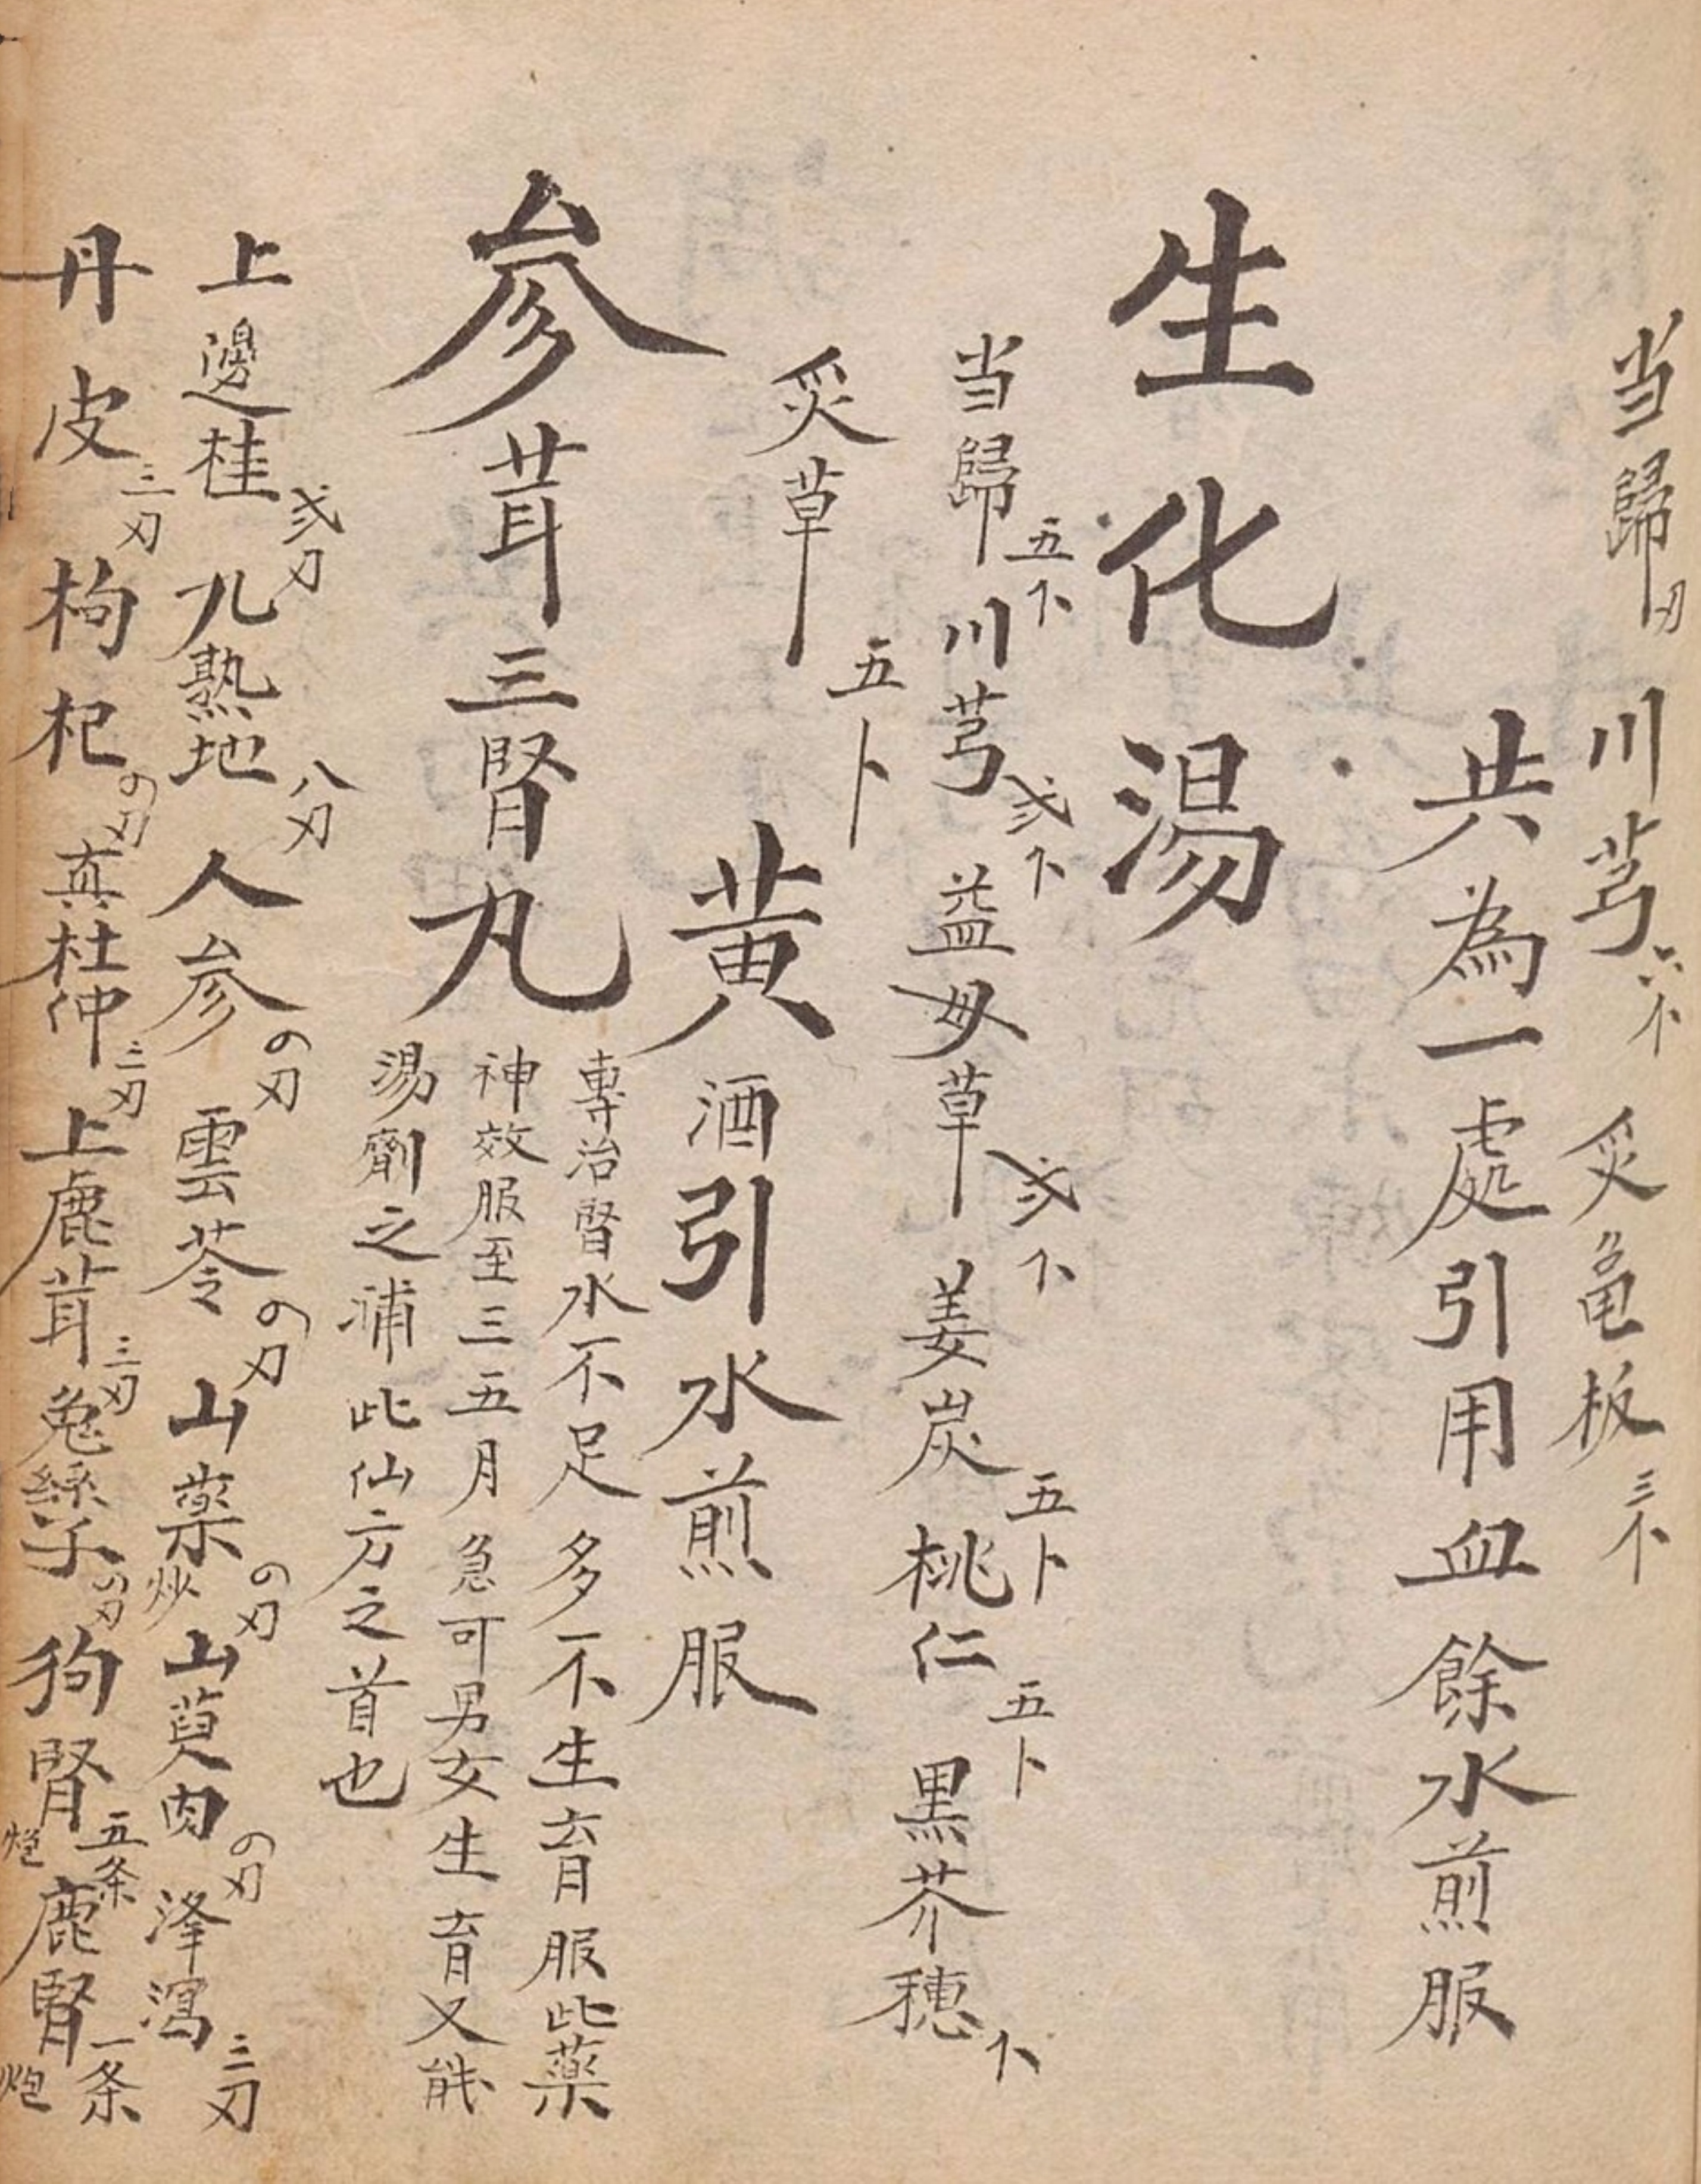 当歸刄 川芎六卜 炙龜板三卜
共為一處引用血餘水煎服
生化湯
当歸五卜 川芎弍卜 益母草弍卜 姜炭五卜 桃仁五卜 黒芥穗卜
炙草五卜
黄酒引水煎服
参茸三腎丸
專治腎水不足多不生育服此藥
神效服至三五月急可男女生育又能
湯劑之浦此仙方之首也
上邊桂弍刄 九熟地八刄 人参〤刄 雲苓〤刄 山藥炒〤刄 山萸肉〤刄 泽瀉三刄
丹皮三刄 枸杞〤刄 真杜仲三刄 上鹿茸三刄 兔絲子〤刄 狗腎炮五条 鹿腎炮一条